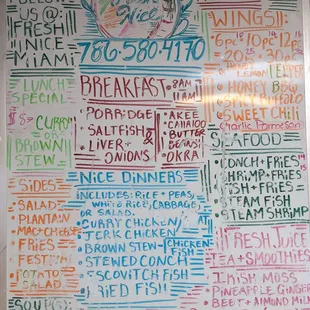 US @:
FRESH
NICE
MIAMI
786-580-4170
LUNCH
SPECIAL
CURRY
OR
BROWN
STEW
SIDES:
SALAD
PLANTAIN
MAC+CHEESE
FRIES
FESTIVAL
POTATO
SALAD
SOUPS
BREAKFAST 8AM
11AM
PORRIDGE
SALTFISH
LIVER +
ONIONS
AKEE
CALLALOO
BUTTER
BEANS
OKRA
NICE DINNERS
INCLUDES: RICE + PEAS,
WHITE RICE, CABBAGE,
OR SALAD.
CURRY CHICKEN
JERK CHICKEN
BROWN STEW-CHICKEN-
FISH
STEWED CONCH
ESCOVITCH FISH
FRIED FISH
WINGS!!:
6pc 10pc 12pc
20pc 30pc
LEMON
HONEY BBQ
SPICY BUFFALO
SWEET CHILI
Garlic Parmesan
SEAFOOD
CONCH+FRIES
SHRIMP+FRIES
FISH+FRIES
STEAM FISH
STEAM SHRIMP
FRESH JUICE
TEA + SMOOTHIES
IRISH MOSS
PINEAPPLE GINGER
BEET + ALMOND MILK